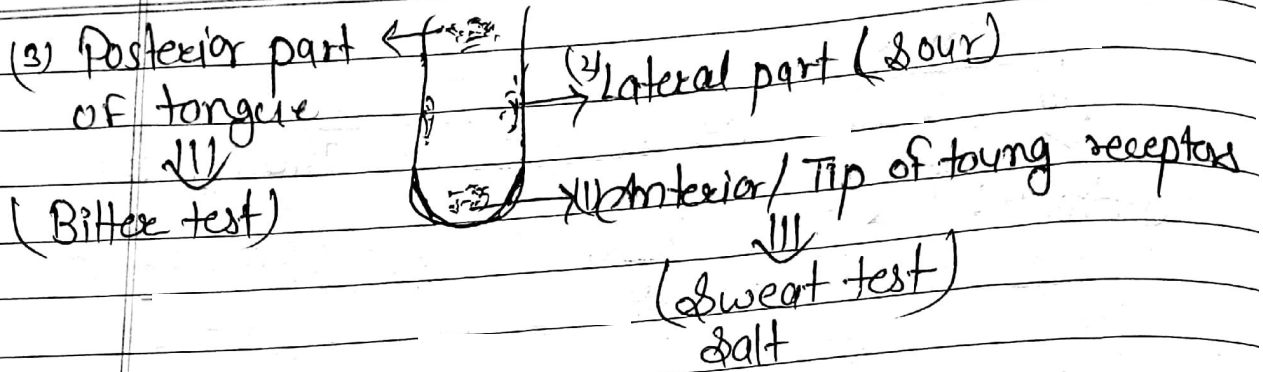 (3) Posterior part
of tongue
(Bitter test)
(2) Lateral part (Sour)
(1) Anterior/ Tip of toung receptors
(Sweat test)
Salt